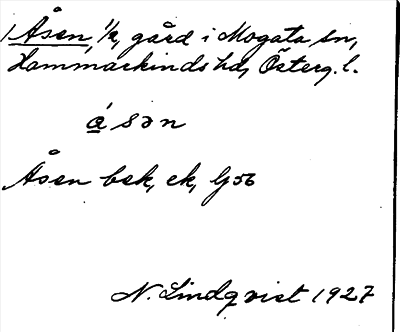 Åsen, 1/1, gård i Mogata sn,
Hammarkinds hd, Österg. l.
ǻsən
Åsen bsk, ek, Gj 56
N. Lindqvist 1927